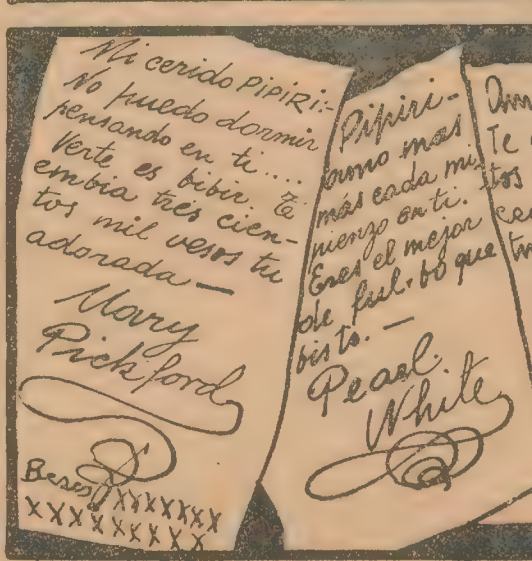 Mi cerido PIPIRI:-
No puedo dormir
pensando en ti....
Verte es bibir. Te
embia tres cien-
tos mil vesos tu
adorada —
Mary
Pickford
Besos XXXXXXX
XXXXXXXXX
Pipiri-
mas
más cada mi-
pienzo en ti.
Eres el mejor
de ful-bo que
bisto. —
Pearl
White
Te
tos